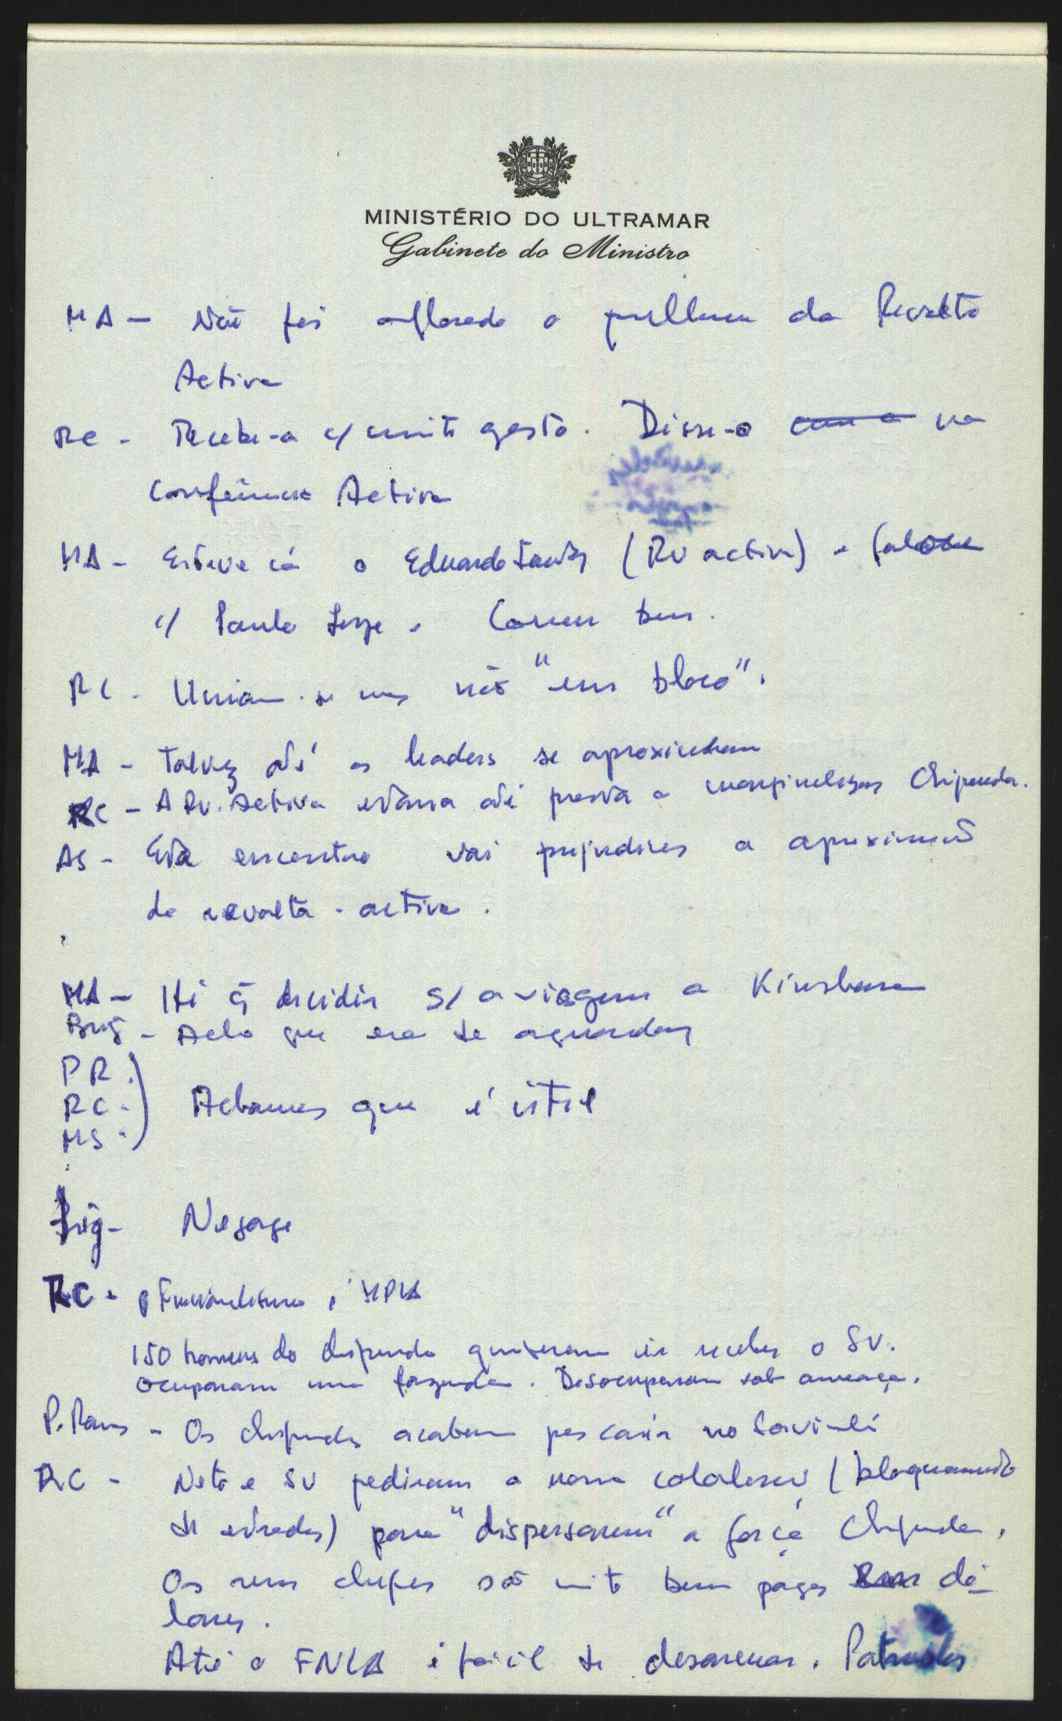 MINISTÉRIO DO ULTRAMAR
Gabinete do Ministro
MA - Não foi aflorado o problema da Revolta
Activa
RC - Recebe-a c/ muito gosto. Disse-o na
Conferência Activa
MA - Esteve cá o Eduardo Santos (Rv activa) e falou
c/ Paulo Jorge. Correu bem.
RC - Uniam-se mas não "em bloco".
MA - Talvez até os leaders se aproximem
RC - A Rv. Activa estava até pronta a marginalizar Chipenda.
AS - Este encontro vai prejudicar a aproximação
da revolta-activa.
MA - Há q decidir s/ a viagem a Kinshasa
Brig - Acho que era de aguardar
PR.
RC - Achamos que é útil
MS -
Brig - Negage
RC - MPLA
150 homens do Chipenda quiseram ir receber o SV.
Ocuparam uma fazenda. Desocuparam sob ameaça.
P. Ramos - Os Chipendas acabam por cair no Savimbi
RC - Neto e SV pediram a nossa colaboração (bloqueamento
de estradas) para "dispersarem" a força Chipenda.
Os seus chefes são muito bem pagos dó-
lares.
Até a FNLA é fácil de desarmar. Patrulhas